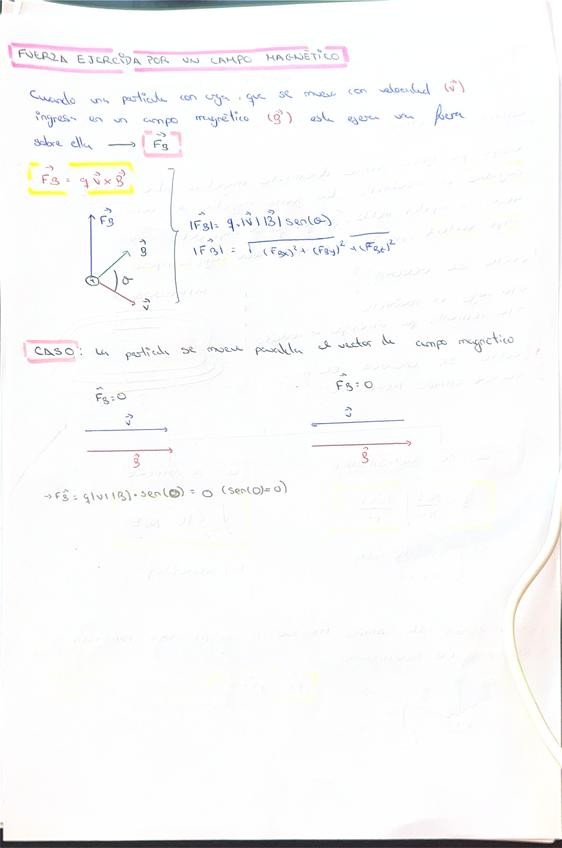 FUERZA EJERCIDA POR UN CAMPO MAGNÉTICO
Cuando una partícula con carga, que se mueve con velocidad (v⃗)
ingresa en un campo magnético (B⃗) este ejerce una fuerza
sobre ella → F⃗B
F⃗B = q v⃗ x B⃗
|F⃗B| = q.|v⃗| |B⃗| sen(θ)
|F⃗B| = √(FBx)² + (FBy)² + (FBz)²
F⃗B
B⃗
θ
+
v⃗
CASO: La partícula se mueve paralela al vector de campo magnético
F⃗B=0
v⃗
B⃗
F⃗B=0
v⃗
B⃗
→ F⃗B = q|v||B|.sen(0) = 0 (sen(0)=0)